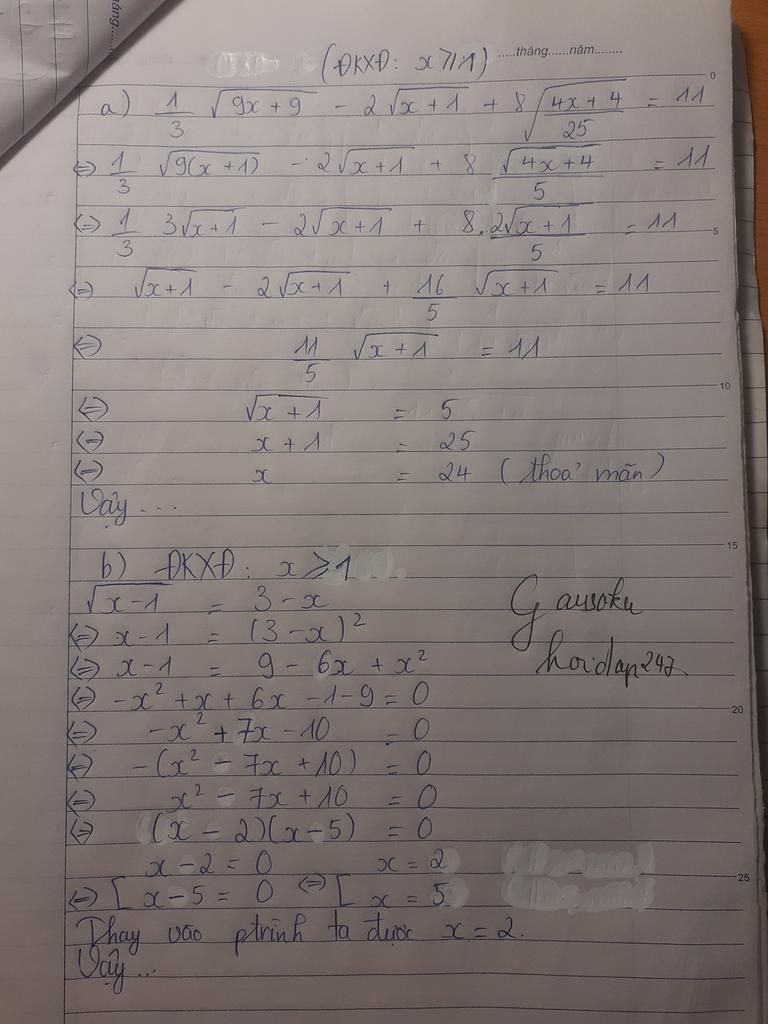 háng......
(ĐKXĐ: x ⩾ 1) .....tháng......năm........
a) 1/3 √(9x + 9) - 2√(x + 1) + 8√((4x + 4)/25) = 11
⇔ 1/3 √(9(x + 1)) - 2√(x + 1) + 8 √(4x + 4)/5 = 11
⇔ 1/3 3√(x + 1) - 2√(x + 1) + 8. 2√(x + 1)/5 = 11
⇔ √(x + 1) - 2√(x + 1) + 16/5 √(x + 1) = 11
⇔ 11/5 √(x + 1) = 11
⇔ √(x + 1) = 5
⇔ x + 1 = 25
⇔ x = 24 (thoả mãn)
Vậy ...
b) ĐKXĐ: x ⩾ 1
√(x - 1) = 3 - x
⇔ x - 1 = (3 - x)²
⇔ x - 1 = 9 - 6x + x²
⇔ -x² + x + 6x - 1 - 9 = 0
⇔ -x² + 7x - 10 = 0
⇔ -(x² - 7x + 10) = 0
⇔ x² - 7x + 10 = 0
⇔ (x - 2)(x - 5) = 0
x - 2 = 0 x = 2
⇔ [ x - 5 = 0 ⇔ [ x = 5
Thay vào ptrình ta được x = 2.
Vậy ...
hoidap247
0
5
10
15
20
25